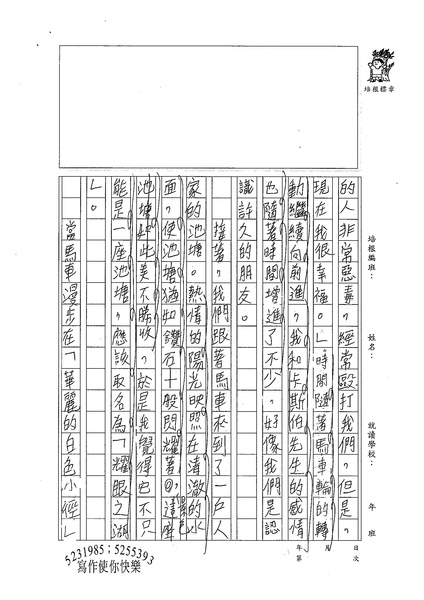 培根標章
培根編班：
姓名：
就讀學校：
年 班
年 月 日
第 次
的人非常惡毒，經常毆打我們，但是，
現在我很幸福。」時間隨著馬車輪的轉
動繼續向前進，我和卡斯伯先生的感情
也隨著時間增進了不少，好像我們是認
識許久的朋友。
接著，我們跟著馬車來到了一戶人
家的池塘。熱情的陽光映照在清澈的水
面，使池塘猶如鑽石一般閃耀著，這座
池塘如此美不勝收，於是我覺得它不只
能是一座池塘，應該取名為「耀眼之湖
」。
當馬車漫步在「華麗的白色小徑」
5231985；5255393
寫作使你快樂